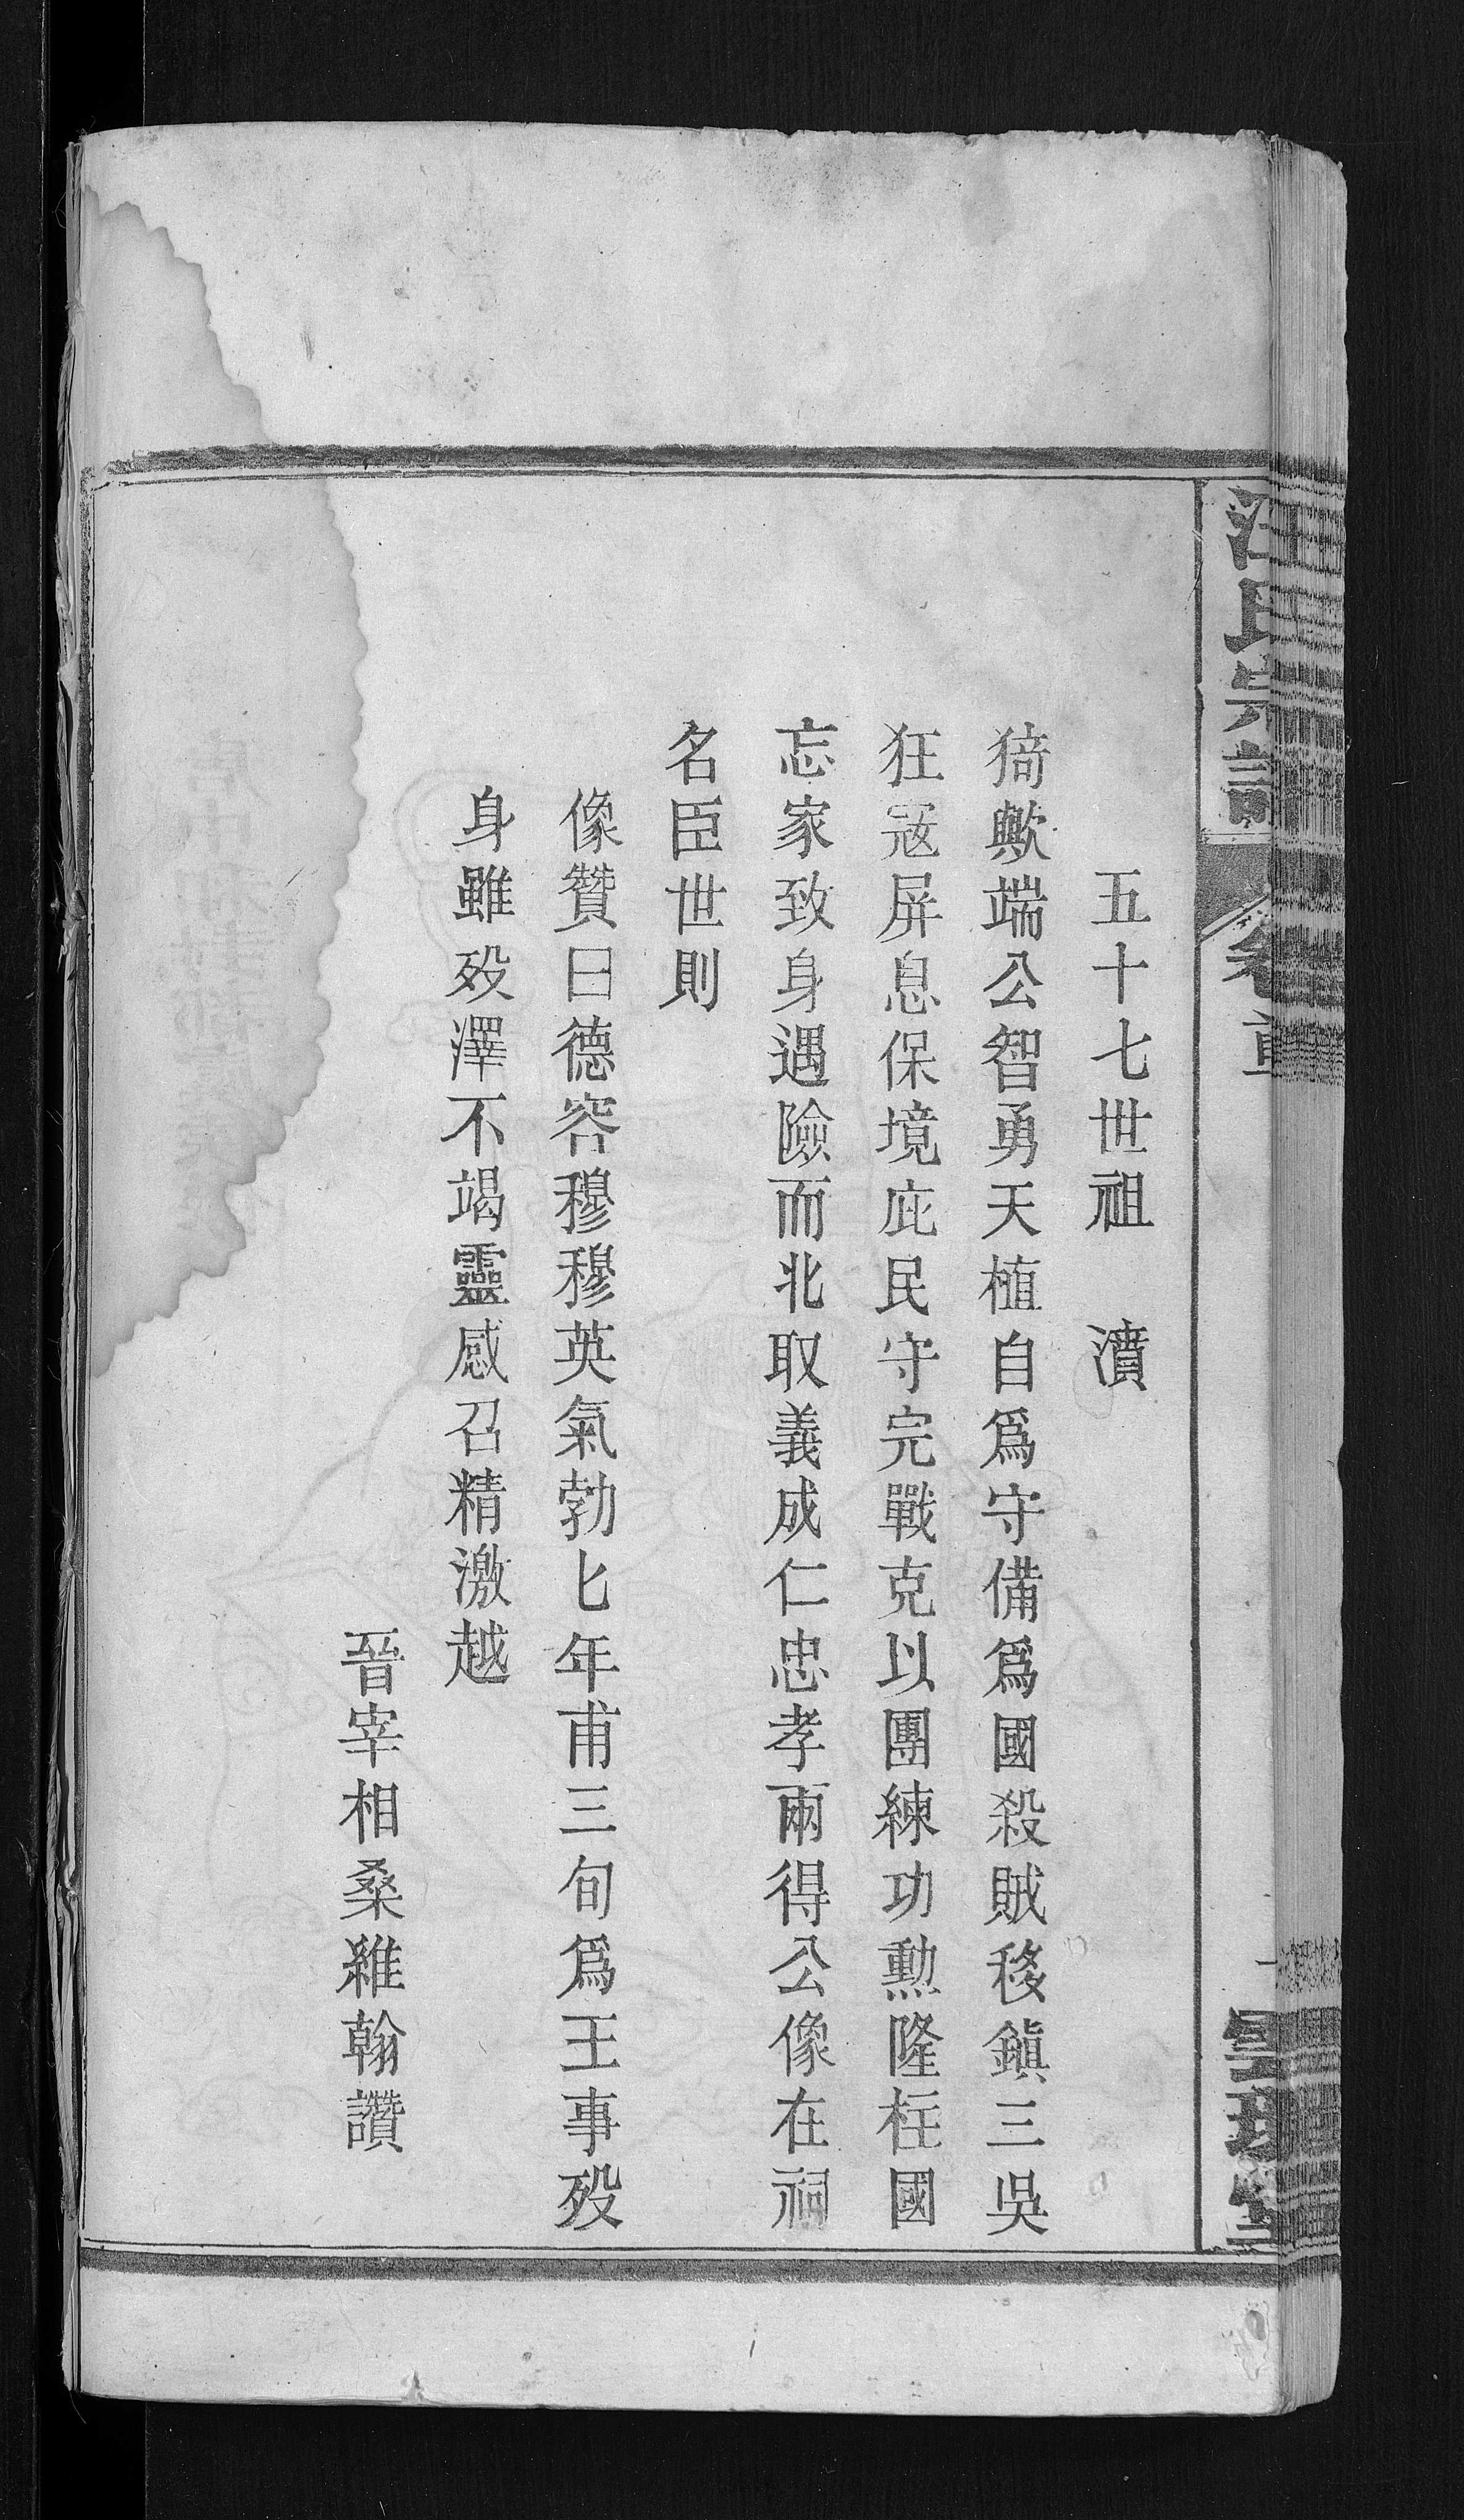 汪氏宗譜
卷首
五十七世祖　濆
猗歟端公智勇天植自爲守備爲國殺賊移鎭三吳
狂寇屏息保境庇民守完戰克以團練功勳隆柱國
忘家致身遇險而北取義成仁忠孝兩得公像在祠
名臣世則
像贊曰德容穆穆英氣勃匕年甫三旬爲王事歿
身雖歿澤不竭靈感召精激越
晉宰相桑維翰讚